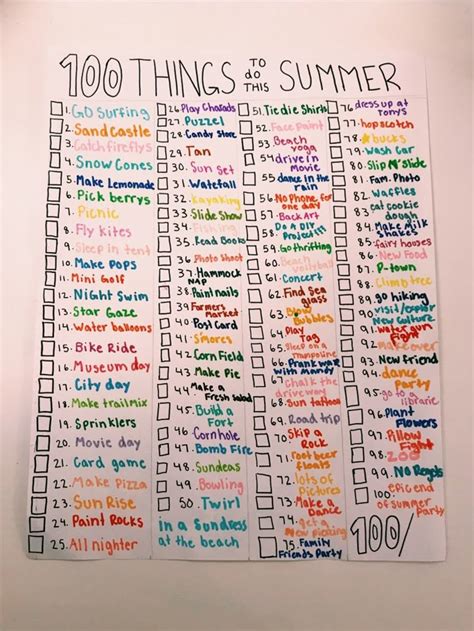 100 THINGS TO do THIS SUMMER
1. GO Surfing
2. Sand Castle
3. Catch fireflys
4. Snow Cones
5. Make Lemonade
6. Pick berrys
7. Picnic
8. Fly kites
9. Sleep in tent
10. Make POPS
11. Mini Golf
12. Night Swim
13. Star Gaze
14. Water balloons
15. Bike Ride
16. Museum day
17. City day
18. Make trailmix
19. Sprinklers
20. Movie day
21. Card game
22. Make Pizza
23. Sun Rise
24. Paint Rocks
25. All nighter
26. Play Charads
27. Puzzel
28. Candy Store
29. Tan
30. Sun Set
31. Watefall
32. Kayaking
33. Slide Show
34. Fishing
35. Read Books
36. Photo Shoot
37. Hammock
NAP
38. Paint nails
39. Farmers
Market
40. Post Card
41. S'mores
42. Corn Field
43. Make Pie
44. Make a
Fresh salad
45. Build a
Fort
46. Cornhole
47. Bomb Fire
48. Sundeas
49. Bowling
50. Twirl
in a sundress
at the beach
51. Tie die Shirts
52. Face Paint
53. Beach
yoga
54. drive in
Movie
55. dance in the
rain
56. No Phone for
one day
57. Back Art
58. Do A DIY
Project!!!
59. Go thrifting
60. Beach
volleyball
61. Concert
62. Find Sea
glass
63. Bubbles
64. Play
Tag
65. Sleep on a
trampoline
66. Prank war
with
67. Chalk the
driveway
68. Sun tattoo
69. Road trip
70. Skip a
Rock
71. root beer
floats
72. lots of
Pictures
73. Make a
Dance
74. get a
New
75. Family
Friends Party
76. dress up at
Tonys
77. hopscotch
78. bucks
79. Wash Car
80. Slip N' Slide
81. Fam. Photo
82. Waffles
83. eat cookie
dough
84. Make milk
shakes
85. fairy houses
86. New Food
87. P-town
88. Climb tree
89. go hiking
90. visit/explor
New culture
91. water gun
fight
92. makeover
93. New friend
94. dance
Party
95. go to a
librarie
96. Plant
Flowers
97. Pillow
Fight
98. ZOO
99. No Regrets
100. epic end
of summer
Party
100/